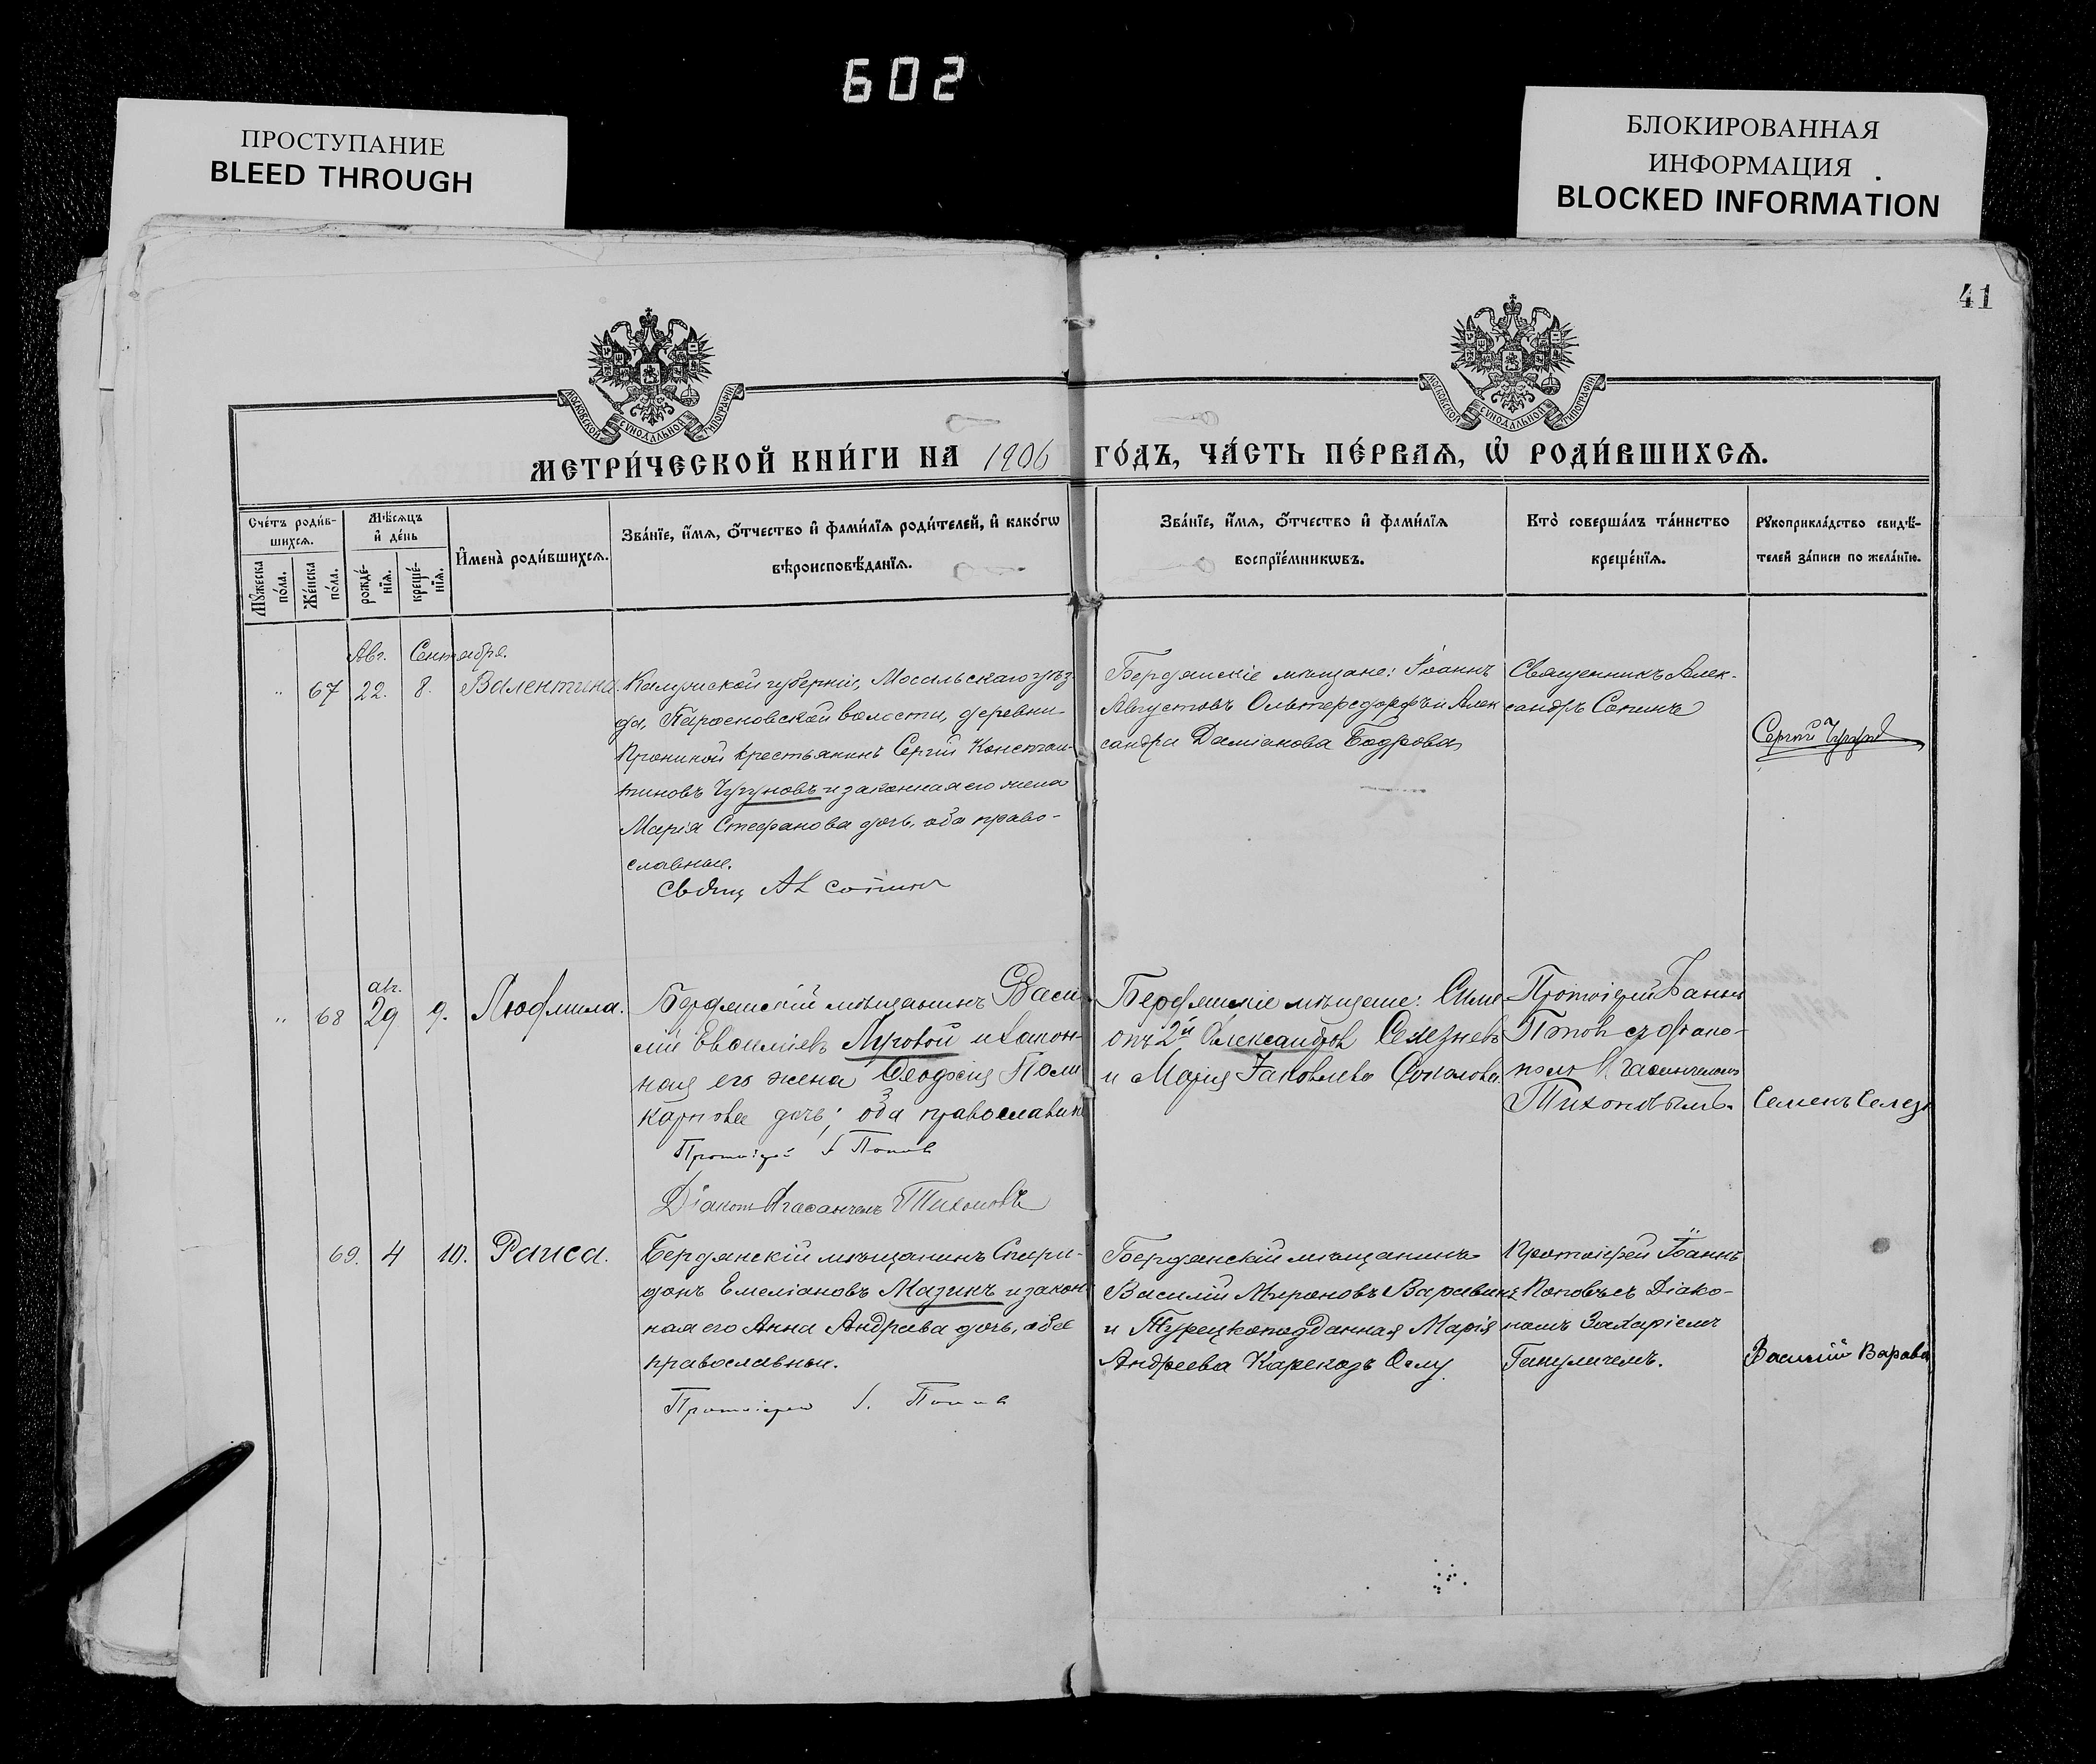 602
ПРОСТУПАНИЕ
BLEED THROUGH
БЛОКИРОВАННАЯ
ИНФОРМАЦИЯ
BLOCKED INFORMATION
41
МОСКОВСКОЙ СѴНОДАЛЬНОЙ ТИПОГРАФІИ
МОСКОВСКОЙ СѴНОДАЛЬНОЙ ТИПОГРАФІИ
МЕТРИ́ЧЕСКОЙ КНИ́ГИ НА 1906 ГО́ДЪ, ЧА́СТЬ ПЕ́РВАѦ, Ѡ҆ РОДИ́ВШИХСѦ.
Сче́тъ роди́в-
шихсѧ.
Мꙋ́жеска
по́ла.
Же́нска
по́ла.
Мѣ́сѧцъ
и҆ де́нь
рожде́-
нїѧ.
креще́-
нїѧ.
И҆мена̀ роди́вшихсѧ.
Зва́нїе, и҆́мѧ, ѻ҆́тчество и҆ фами́лїѧ роди́телей, и҆ како́гѡ
вѣроисповѣ́данїѧ.
Зва́нїе, и҆́мѧ, ѻ҆́тчество и҆ фами́лїѧ
воспрїе́мникѡвъ.
Кто̀ соверша́лъ та́инство
креще́нїѧ.
Рꙋкоприкла́дство свидѣ́-
телей за́писи по жела́нїю.
Авг. Сентября.
" 67 22. 8. Валентина.
Калужской губерніи, Мосальскаго уѣз-
да, волости, деревни
крестьянинъ Сергій Констан-
тиновъ Чугуновъ и законная его жена
Марія Стефанова дочь, оба право-
славные.
Свящ Ал Сопинъ
Бердянскіе мѣщане: Іоаннъ
Августовъ Ольтерсдорфъ и Алек
сандра Даміанова Бодрова
Священникъ Алек-
сандръ Сопинъ
Сергѣй
авг.
" 68 29 9. Людмила.
Бердянскій мѣщанинъ Васи-
лій Евѳиміевъ Луговой и закон-
ная его жена Ѳеодосія Поли
карпова дочь; оба православные
Протоіерей І Поповъ
Діаконъ Тихоновъ
Бердянскіе мѣщане: Симе
онъ 2й Александровъ Селезневъ
и Марія Іаковлева Соколова.
Протоіерей Іоаннъ
Поповъ съ діако-
номъ
Тихоновымъ.
Семенъ Селезн
69. 4 10. Раиса.
Бердянскій мѣщанинъ Спири-
донъ Емеліановъ Мазинъ и закон
ная его Анна Андреева дочь, оба
православные.
Протоіерей І. Поповъ
Бердянскій мѣщанинъ
Василій Мироновъ
и Турецкоподданная Марія
Андреева Оглу.
Протоіерей Іоаннъ
Поповъ съ Діако-
номъ Захаріемъ
Василій Варава